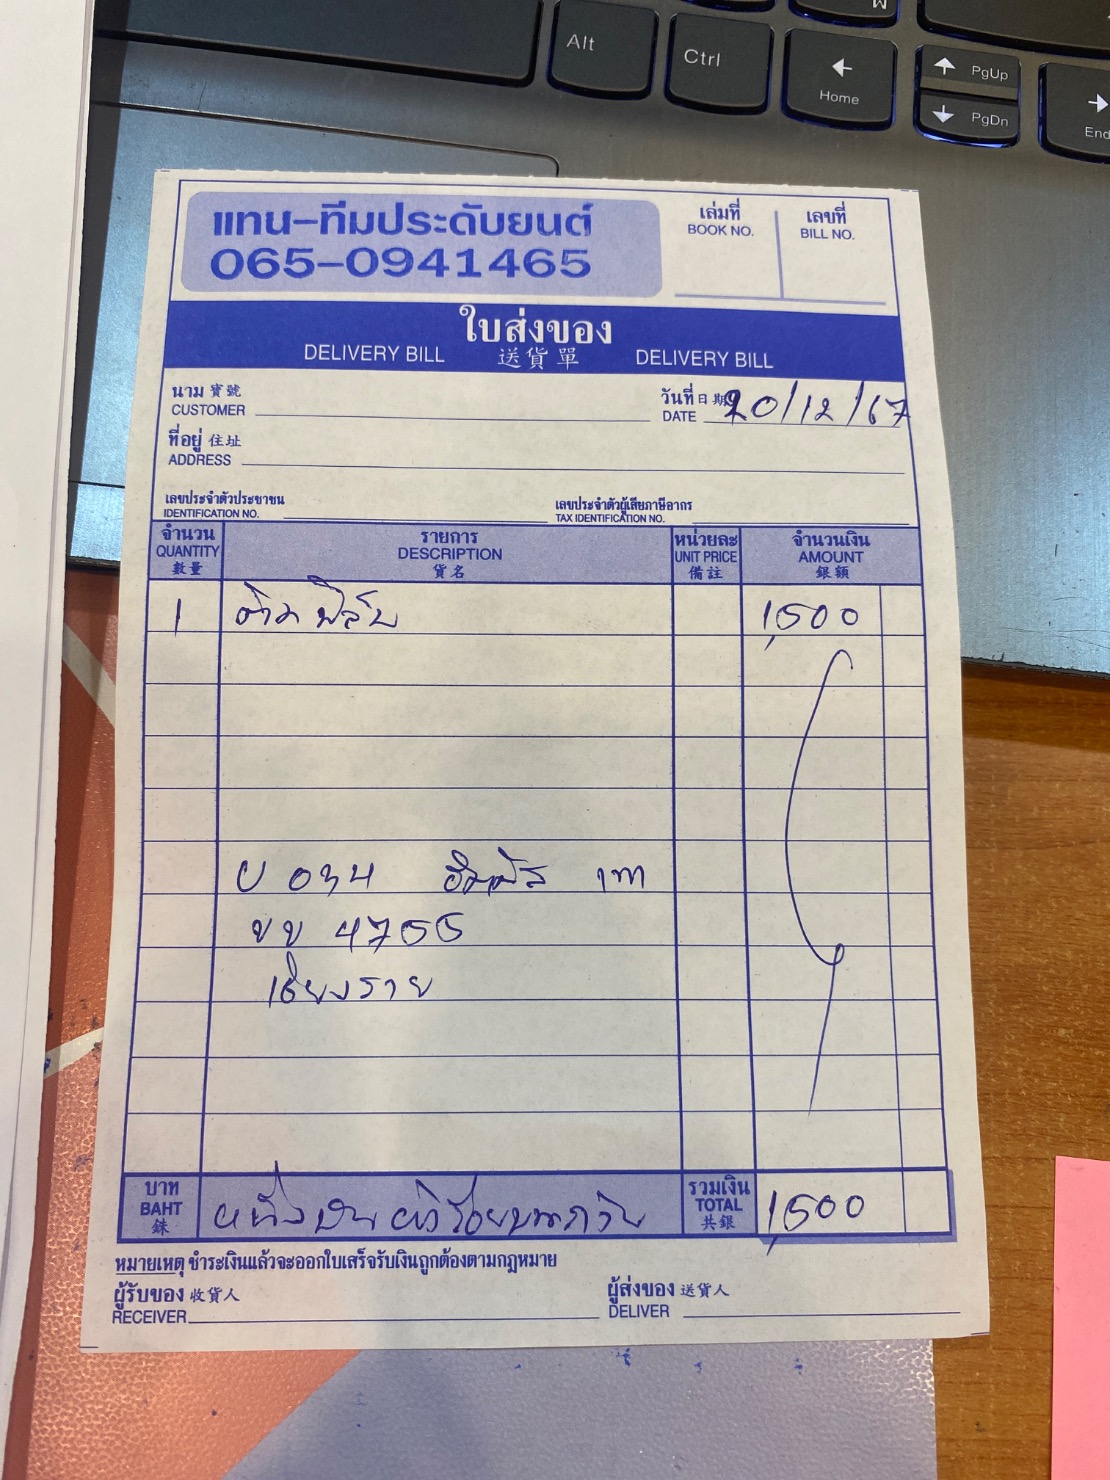 Alt
Ctrl
Home
PgUp
PgDn
End
แทน-ทีมประดับยนต์
065-0941465
เล่มที่
BOOK NO.
เลขที่
BILL NO.
ใบส่งของ
DELIVERY BILL 送貨單 DELIVERY BILL
นาม 寶號
CUSTOMER
วันที่ 日期 20/12/67
DATE
ที่อยู่ 住址
ADDRESS
เลขประจำตัวประชาชน
IDENTIFICATION NO.
เลขประจำตัวผู้เสียภาษีอากร
TAX IDENTIFICATION NO.
จำนวน
QUANTITY
數量
รายการ
DESCRIPTION
貨名
หน่วยละ
UNIT PRICE
備註
จำนวนเงิน
AMOUNT
銀額
1 ฟิล์ม 1,500
ย 034 เทา
ขข 4755
เชียงราย
บาท
BAHT
銖
หนึ่งพันห้าร้อยบาทถ้วน
รวมเงิน
TOTAL
共銀
1,500
หมายเหตุ ชำระเงินแล้วจะออกใบเสร็จรับเงินถูกต้องตามกฎหมาย
ผู้รับของ 收貨人
RECEIVER
ผู้ส่งของ 送貨人
DELIVER